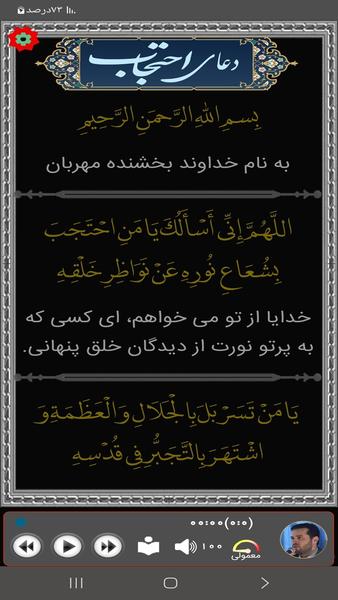 ۷۳درصد
دعای احتجاب
بِسمِ اللهِ الرَّحمَنِ الرَّحِیمِ
به نام خداوند بخشنده مهربان
اللَّهُمَّ إِنِّی أَسْأَلُکَ یَا مَنِ احْتَجَبَ
بِشُعَاعِ نُورِهِ عَنْ نَوَاظِرِ خَلْقِهِ
خدایا از تو می خواهم، ای کسی که
به پرتو نورت از دیدگان خلق پنهانی.
یَا مَنْ تَسَرْبَلَ بِالْجَلَالِ وَ الْعَظَمَةِ وَ
اشْتَهَرَ بِالتَّجَبُّرِ فِی قُدْسِهِ
۰۰:۰۰(۰:۰)
۱۰۰
معمولی